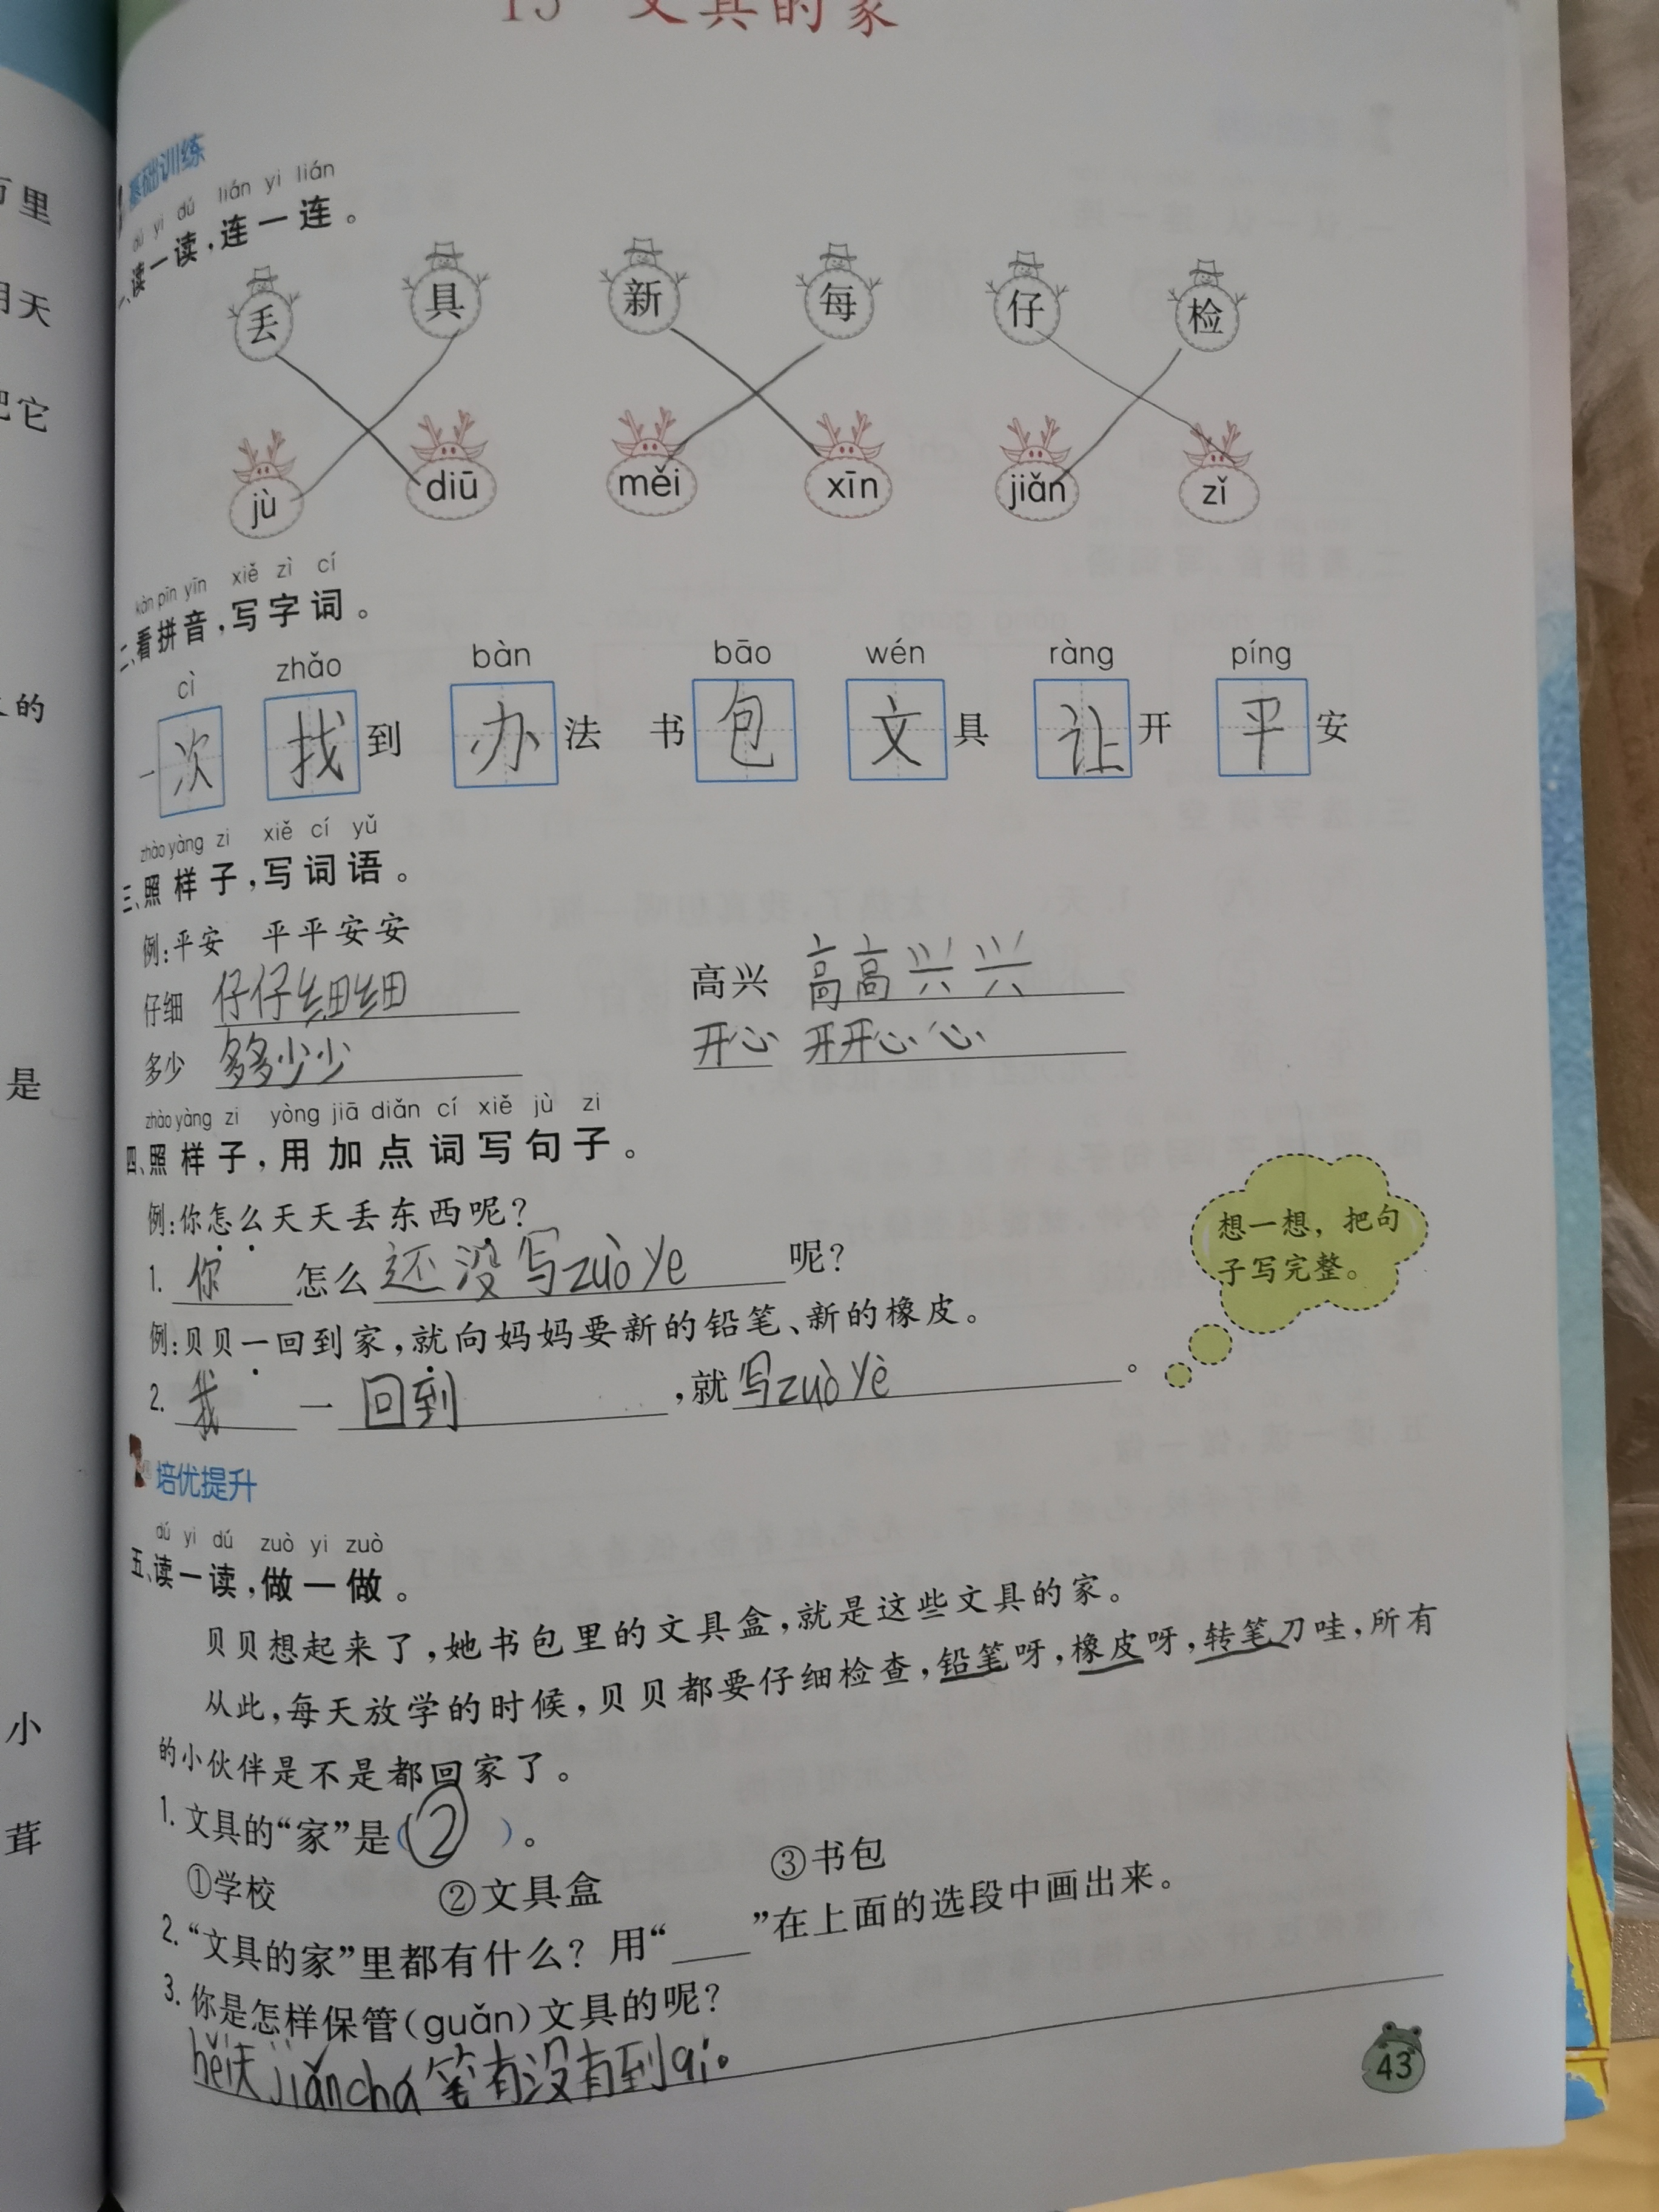 15 文具的家
基础训练
dú yi dú lián yi lián
一、读一读,连一连。
丢 具 新 每 仔 检
jù diū měi xīn jiǎn zǐ
kàn pīn yīn xiě zì cí
二、看拼音,写字词。
cì zhǎo bàn bāo wén ràng píng
一次 找到 办法 书包 文具 让开 平安
zhào yàng zi xiě cí yǔ
三、照样子,写词语。
例:平安 平平安安
仔细 仔仔细细 高兴 高高兴兴
多少 多多少少 开心 开开心心
zhào yàng zi yòng jiā diǎn cí xiě jù zi
四、照样子,用加点词写句子。
例:你怎么天天丢东西呢?
1. 你 怎么 还没写zuò ye 呢?
想一想,把句
子写完整。
例:贝贝一回到家,就向妈妈要新的铅笔、新的橡皮。
2. 我 一 回到 ,就 写zuò yè 。
培优提升
dú yi dú zuò yi zuò
五、读一读,做一做。
贝贝想起来了,她书包里的文具盒,就是这些文具的家。
从此,每天放学的时候,贝贝都要仔细检查,铅笔呀,橡皮呀,转笔刀哇,所有
的小伙伴是不是都回家了。
1. 文具的“家”是(②)。
①学校 ②文具盒 ③书包
2. “文具的家”里都有什么?用“____”在上面的选段中画出来。
3. 你是怎样保管(guǎn)文具的呢?
hěi天jiǎnchá笔有没有到qi。
43
里
天
把它
的
是
小
茸